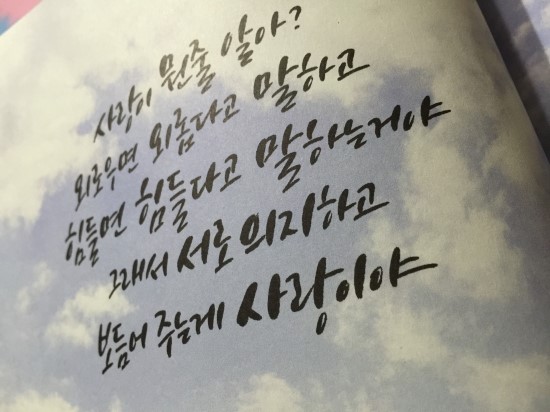 사랑이 뭔줄 알아?
외로우면 외롭다고 말하고
힘들면 힘들다고 말하는거야
그래서 서로 의지하고
보듬어 주는게 사랑이야